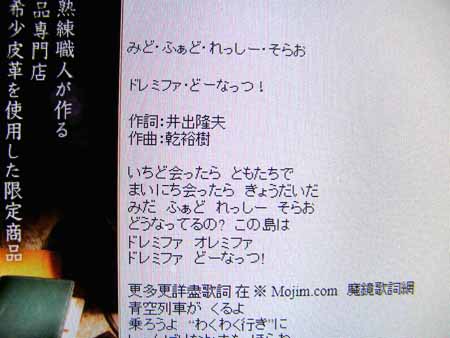 熟練職人が作る
品専門店
希少皮革を使用した限定商品
みど・ふぁど・れっしー・そらお
ドレミファ・どーなっつ！
作詞：井出隆夫
作曲：乾裕樹
いちど会ったら ともたちで
まいにち会ったら きょうだいだ
みだ ふぁど れっしー そらお
どうなってるの？ この島は
ドレミファ オレミファ
ドレミファ どーなっつ！
更多更詳盡歌詞 在 ※ Mojim.com 魔鏡歌詞網
青空列車が くるよ
乗ろうよ “わくわく行き”に